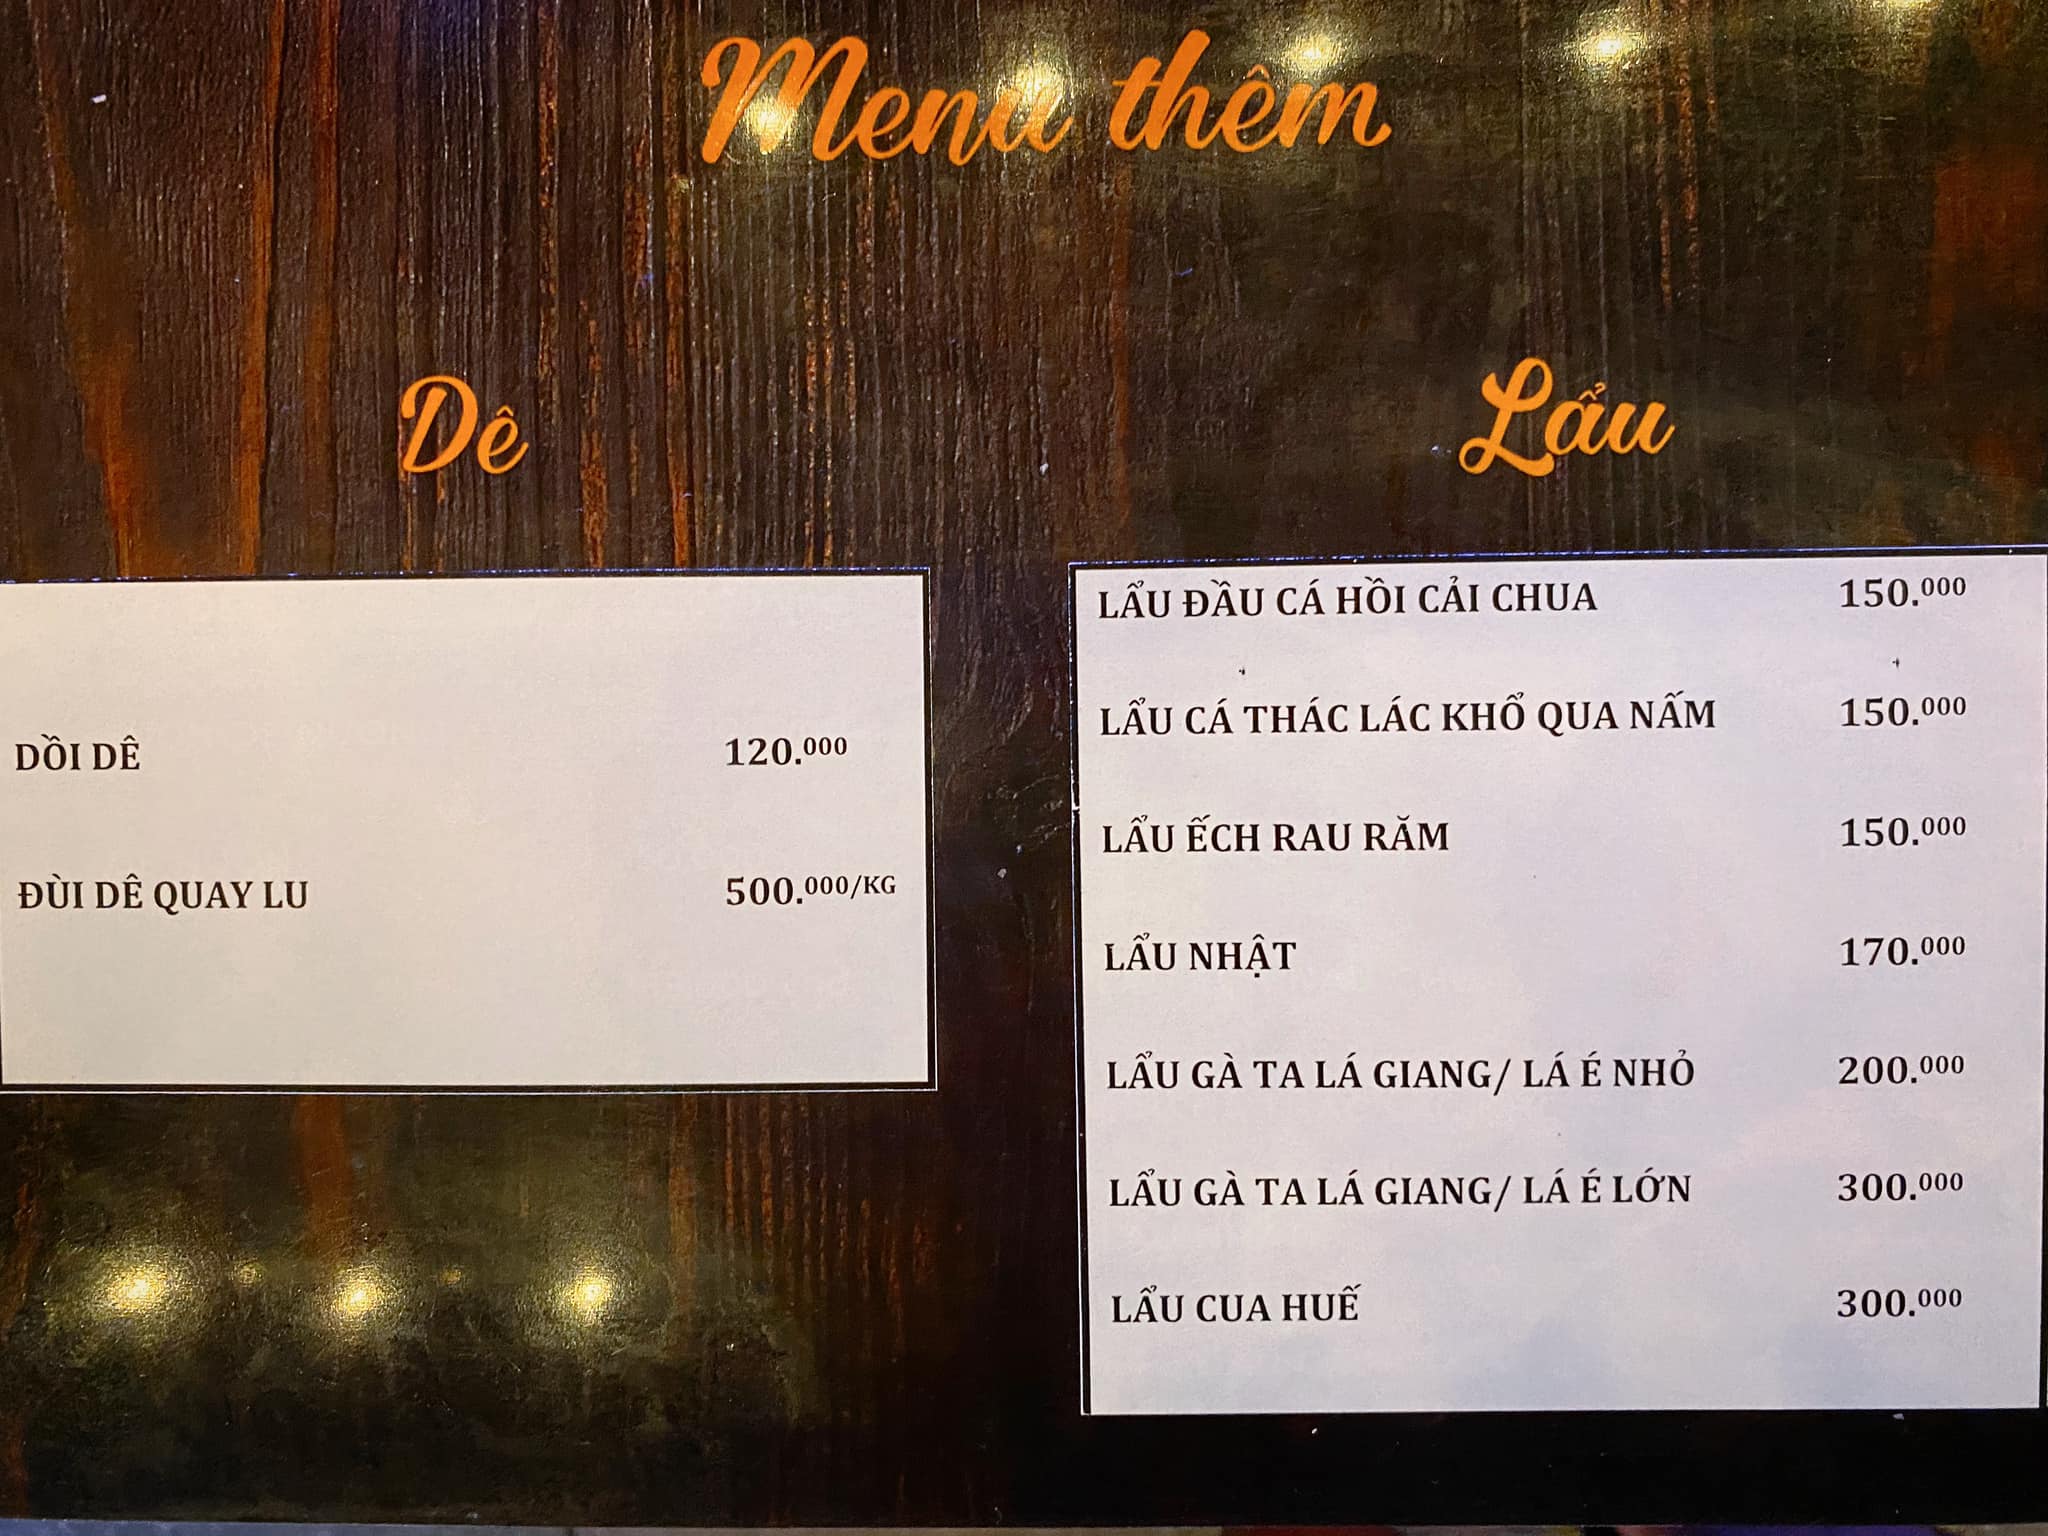 Menu thêm
Dê
DỒI DÊ 120.000
ĐÙI DÊ QUAY LU 500.000/KG
Lẩu
LẨU ĐẦU CÁ HỒI CẢI CHUA 150.000
LẨU CÁ THÁC LÁC KHỔ QUA NẤM 150.000
LẨU ẾCH RAU RĂM 150.000
LẨU NHẬT 170.000
LẨU GÀ TA LÁ GIANG/ LÁ É NHỎ 200.000
LẨU GÀ TA LÁ GIANG/ LÁ É LỚN 300.000
LẨU CUA HUẾ 300.000